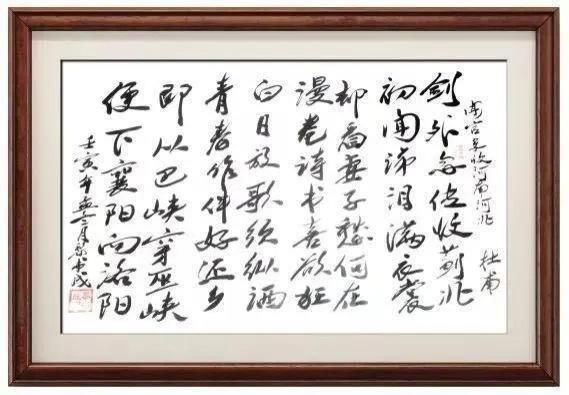 闻官军收河南河北
杜甫
剑外忽传收蓟北
初闻涕泪满衣裳
却看妻子愁何在
漫卷诗书喜欲狂
白日放歌须纵酒
青春作伴好还乡
即从巴峡穿巫峡
便下襄阳向洛阳
壬寅年